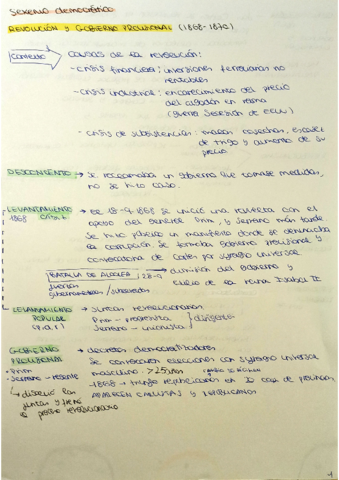 Sexenio democrático
REVOLUCIÓN y GOBIERNO PROVISIONAL (1868-1870)
Contexto
Causas de la revolución:
- crisis financiera: inversiones ferroviarias no
rentables
- crisis industrial: encarecimiento del precio
del algodón en rama
(guerra Secesión de EEUU)
- crisis de subsistencias: malas cosechas, escasez
de trigo y aumento de su
precio
DESCONTENTO → Se reclamaba un gobierno que tomase medidas,
no se hizo caso.
LEVANTAMIENTO
1868
→ El 18-9-1868 se inició una revuelta con el
apoyo del general Prim, y Serrano más tarde
Se hizo público un manifiesto donde se denunciaba
la corrupción se formaba gobierno provisional y
convocatoria de Cortes por sufragio universal
BATALLA DE ALCOLEA, 28-9
→ dimisión del gobierno y
fuerzas
exilio de la reina Isabel II
gubernamentales / sublevados
LEVANTAMIENTO
POPULAR
→ Juntas revolucionarias
Prim - progresista
Serrano - unionista
dirigentes
GOBIERNO
PROVISIONAL
→ decretos democratizadores
Se convocaron elecciones con sufragio universal
• Prim
masculino > 25 años
• Serrano - regente
→ disolvió las
juntas y frenó
el proceso revolucionario
1868 → triunfo republicanos en 20 cap. de provincia,
aparecen carlistas y republicanos